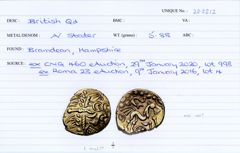 UNIQUE No.: 20 0212
DESC: British Qd BMC: VA:
METAL/DENOM: AV Stater WT (grams): 5.88 ABC:
FOUND: Bramdean, Hampshire
SOURCE: ex CNG 460 eAuction, 29th January 2020, lot 998
ex Roma 23 eAuction, 9th January 2016, lot 4